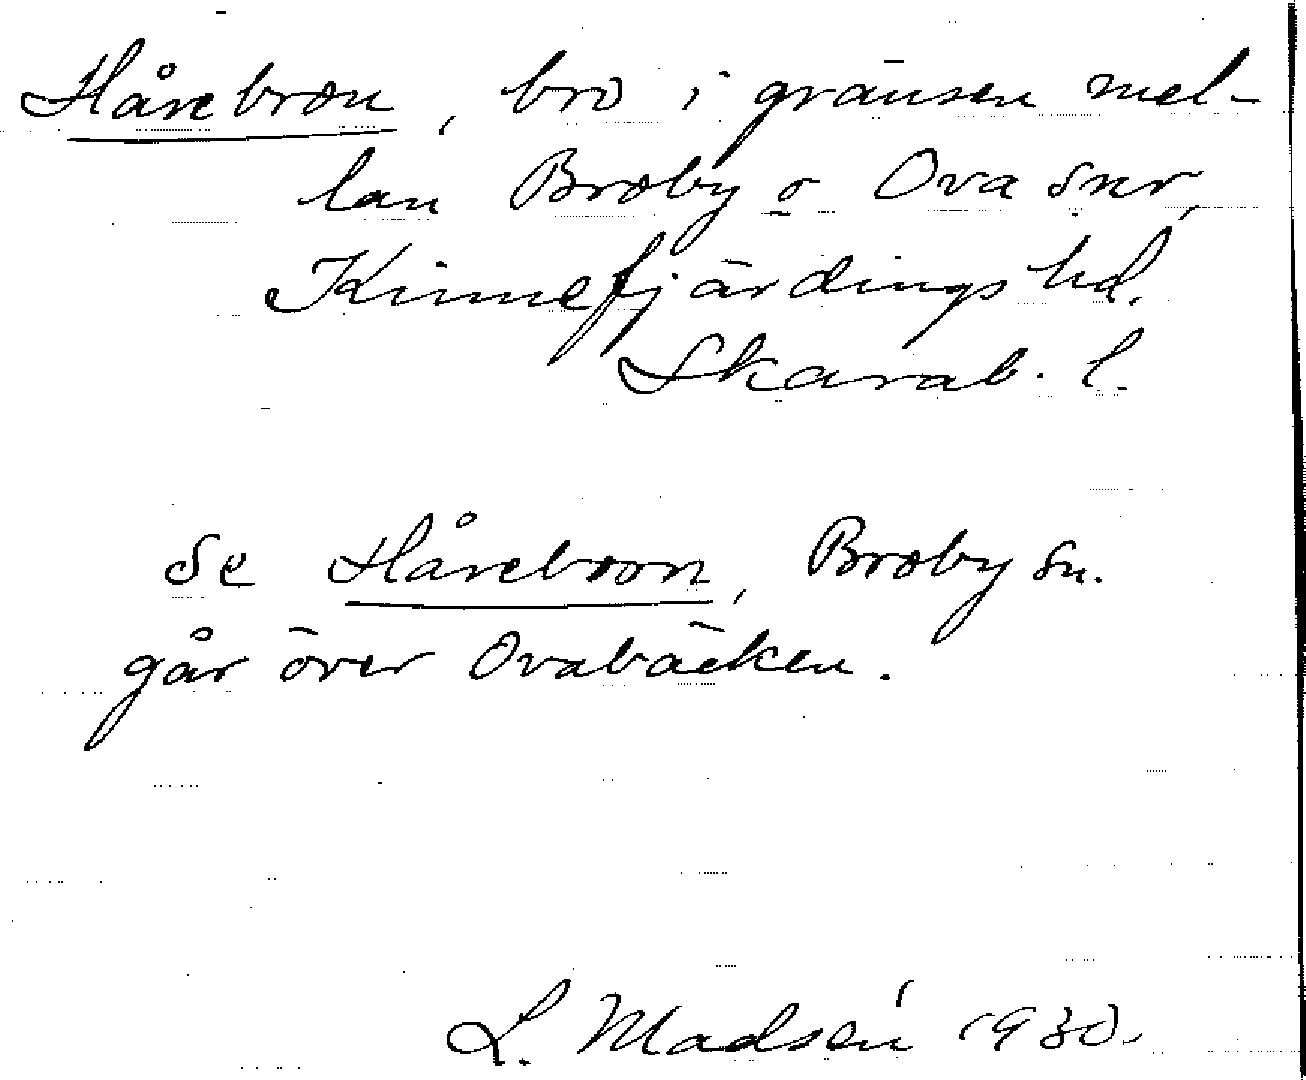 Hårebron, bro i gränsen mel-
lan Broby o Ova snr,
Kinnefjärdings hd.
Skarab. l.
Se Håreborn, Broby sn.
går över Ovabäcken.
L. Madsén 1930.